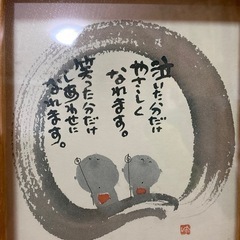 泣いた分だけ
やさしく
なれます。
笑った分だけ
しあわせに
なれます。